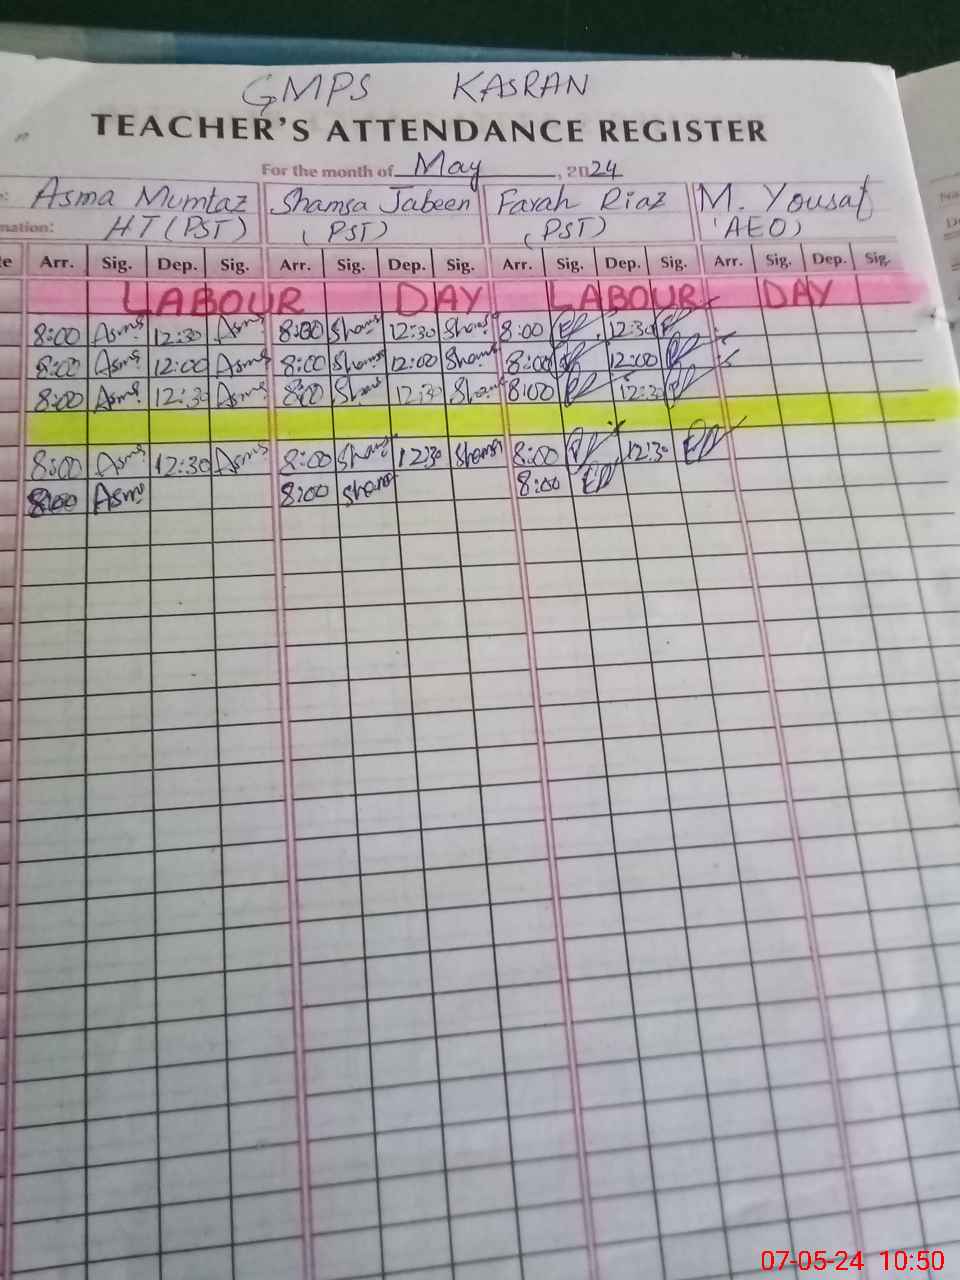 GMPS KASRAN
TEACHER'S ATTENDANCE REGISTER
For the month of May, 2024
Asma Mumtaz Shamsa Jabeen Farah Riaz M. Yousaf
nation: HT (PST) (PST) (PST) (AEO)
te Arr. Sig. Dep. Sig. Arr. Sig. Dep. Sig. Arr. Sig. Dep. Sig. Arr. Sig. Dep. Sig.
LABOUR DAY LABOUR DAY
8:00 Asma 12:30 Asma 8:00 Shams 12:30 Shams 8:00 12:30
8:00 Asma 12:00 Asma 8:00 Shams 12:00 Shams 8:00 12:00
8:00 Asma 12:30 Asma 8:00 Shams 12:30 Shams 8:00 12:30
8:00 Asma 12:30 Asma 8:00 Shams 12:30 Shams 8:00 12:30
8:00 Asma 8:00 Shams 8:00
07-05-24 10:50